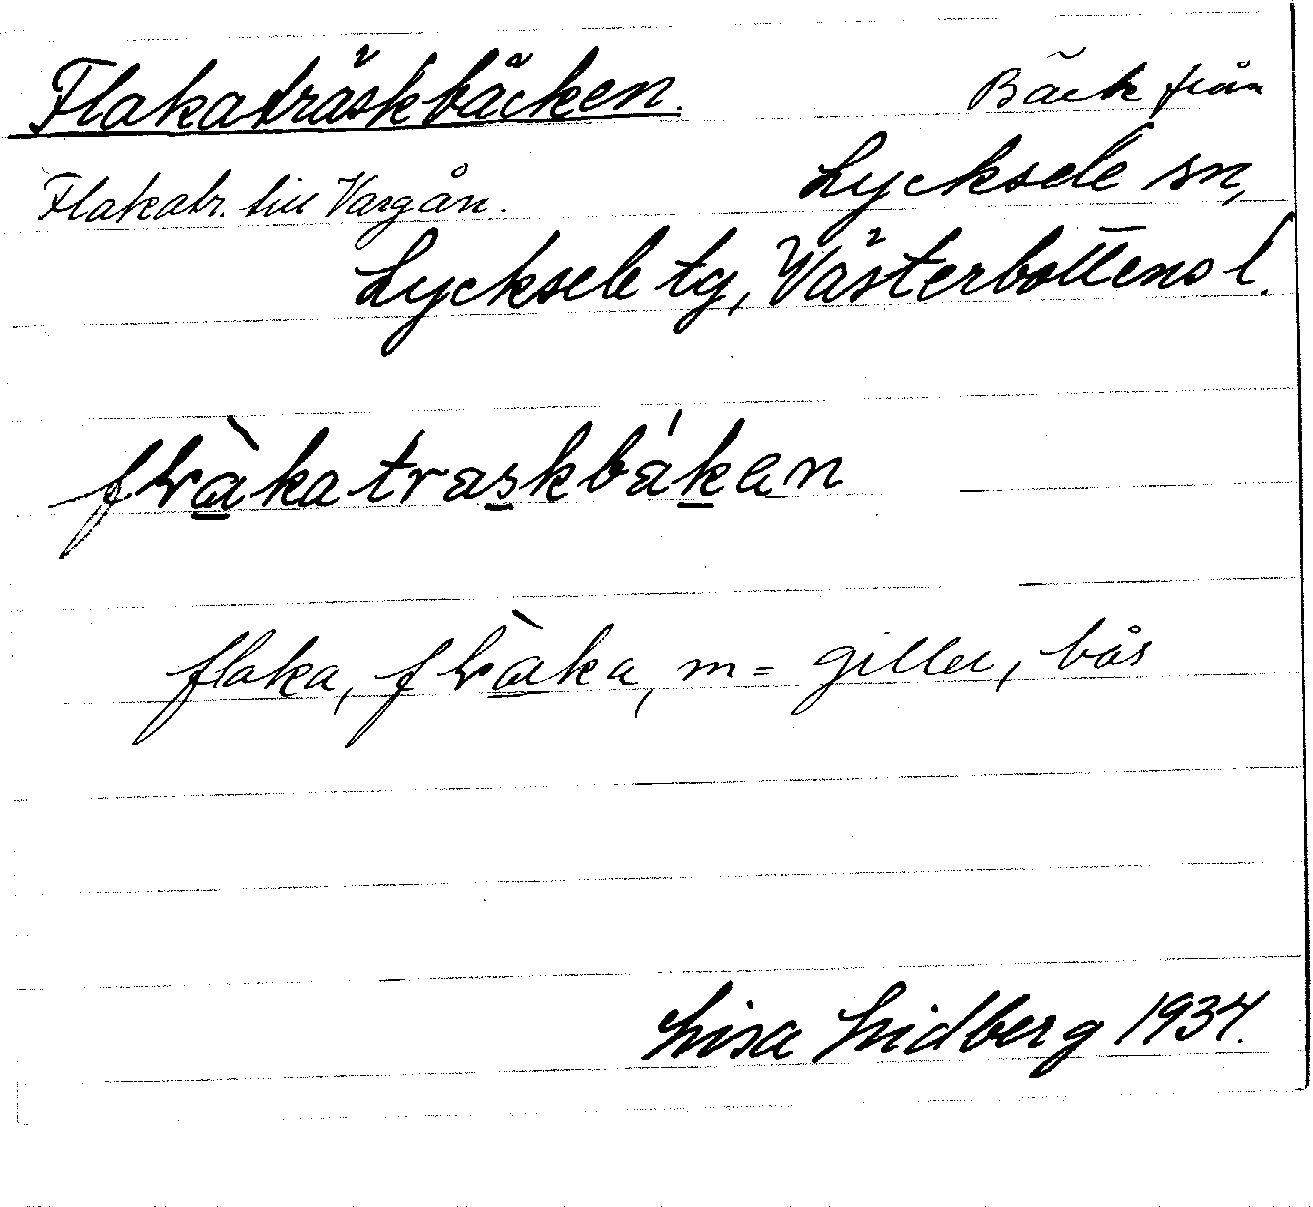 Flakaträskbäcken.
Bäck från
Flakatr. till Vargån.
Lycksele sn,
Lycksele tg, Västerbottens l.
flaka, m = giller, bås
Lisa Lidberg 1934.